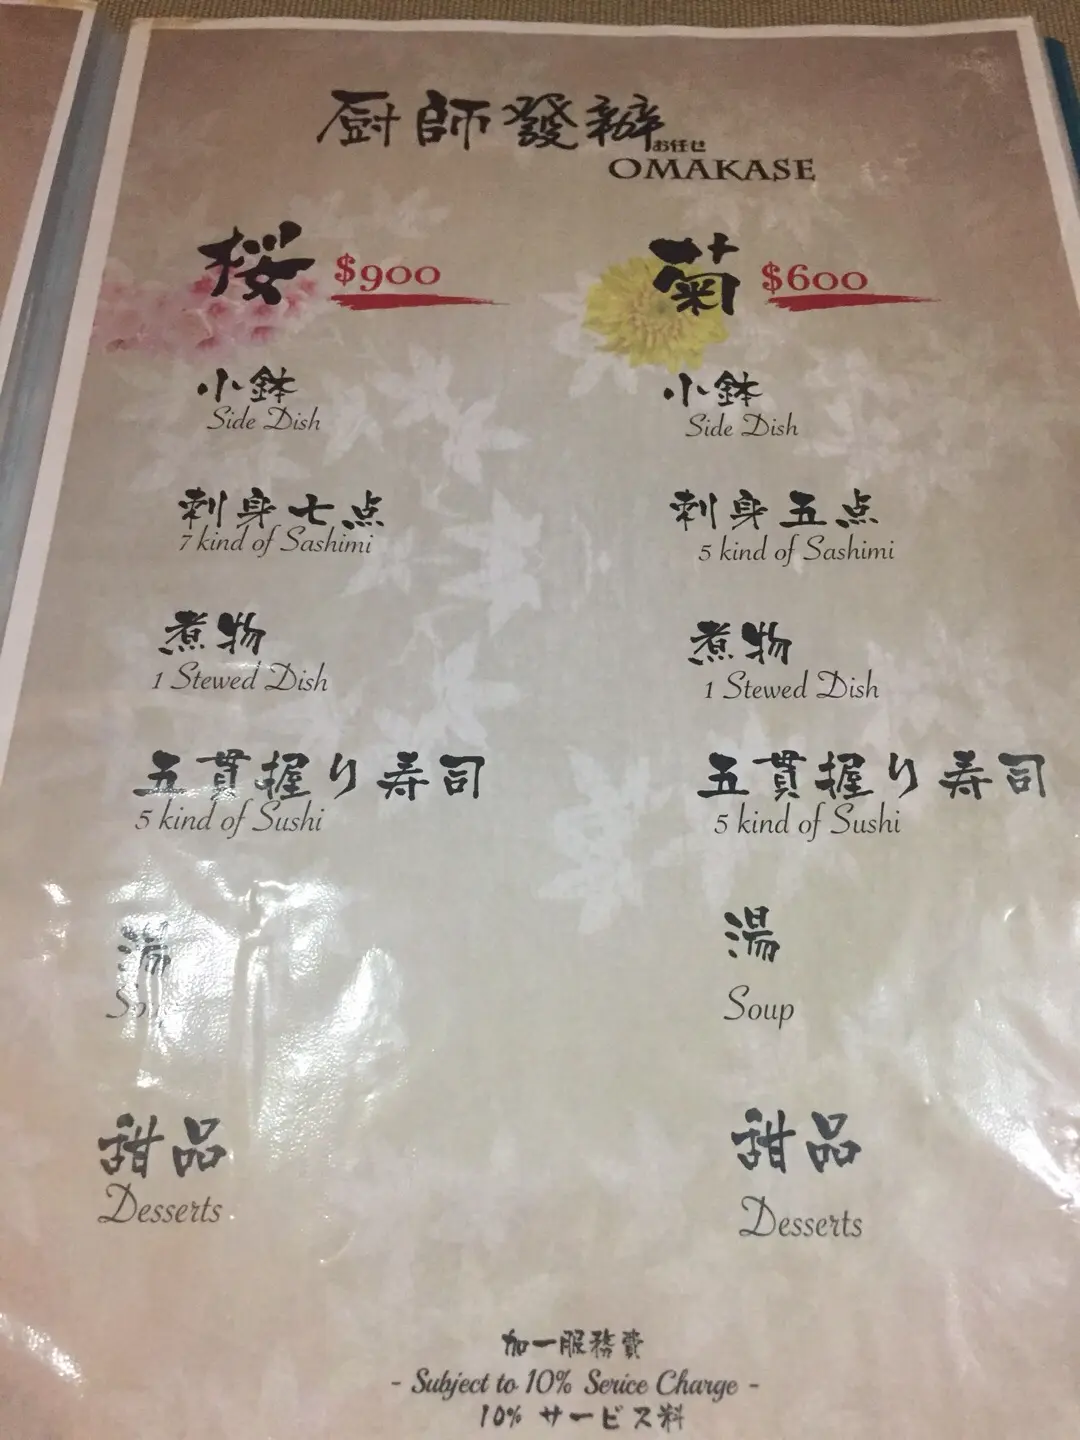 厨師發辦
お任せ
OMAKASE
桜 $900
小鉢
Side Dish
刺身七点
7 kind of Sashimi
煮物
1 Stewed Dish
五貫握り寿司
5 kind of Sushi
湯
Soup
甜品
Desserts
菊 $600
小鉢
Side Dish
刺身五点
5 kind of Sashimi
煮物
1 Stewed Dish
五貫握り寿司
5 kind of Sushi
湯
Soup
甜品
Desserts
加一服務費
- Subject to 10% Serice Charge -
10% サービス料